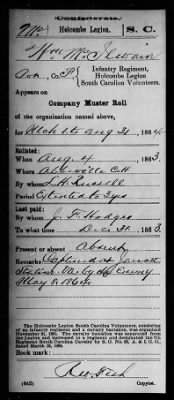 Confederate.
Mc Holcombe Legion. S. C.
Wm Mc
Co. F, Infantry Regiment, Holcombe Legion South Carolina Volunteers.
Appears on
Company Muster Roll
of the organization named above,
for Mch 1 to Aug 31, 1864.
Enlisted:
When Aug. 4, 1863.
Where Abbeville C H
By whom L. H. Russell
Period
Last paid:
By whom J. F. Hodges
To what time Dec 31, 1863.
Present or absent Absent
Remarks: Captured at Jarratt
Station Va by the Enemy
May 8. 1864.
The Holcombe Legion South Carolina Volunteers, consisting
of an infantry regiment and a cavalry battalion, was organized
November 21, 1861. The cavalry battalion was separated from the
Legion and increased to a regiment and designated the 7th
Regiment South Carolina Cavalry by
March 18, 1864.
Book mark:
(642) Copyist.